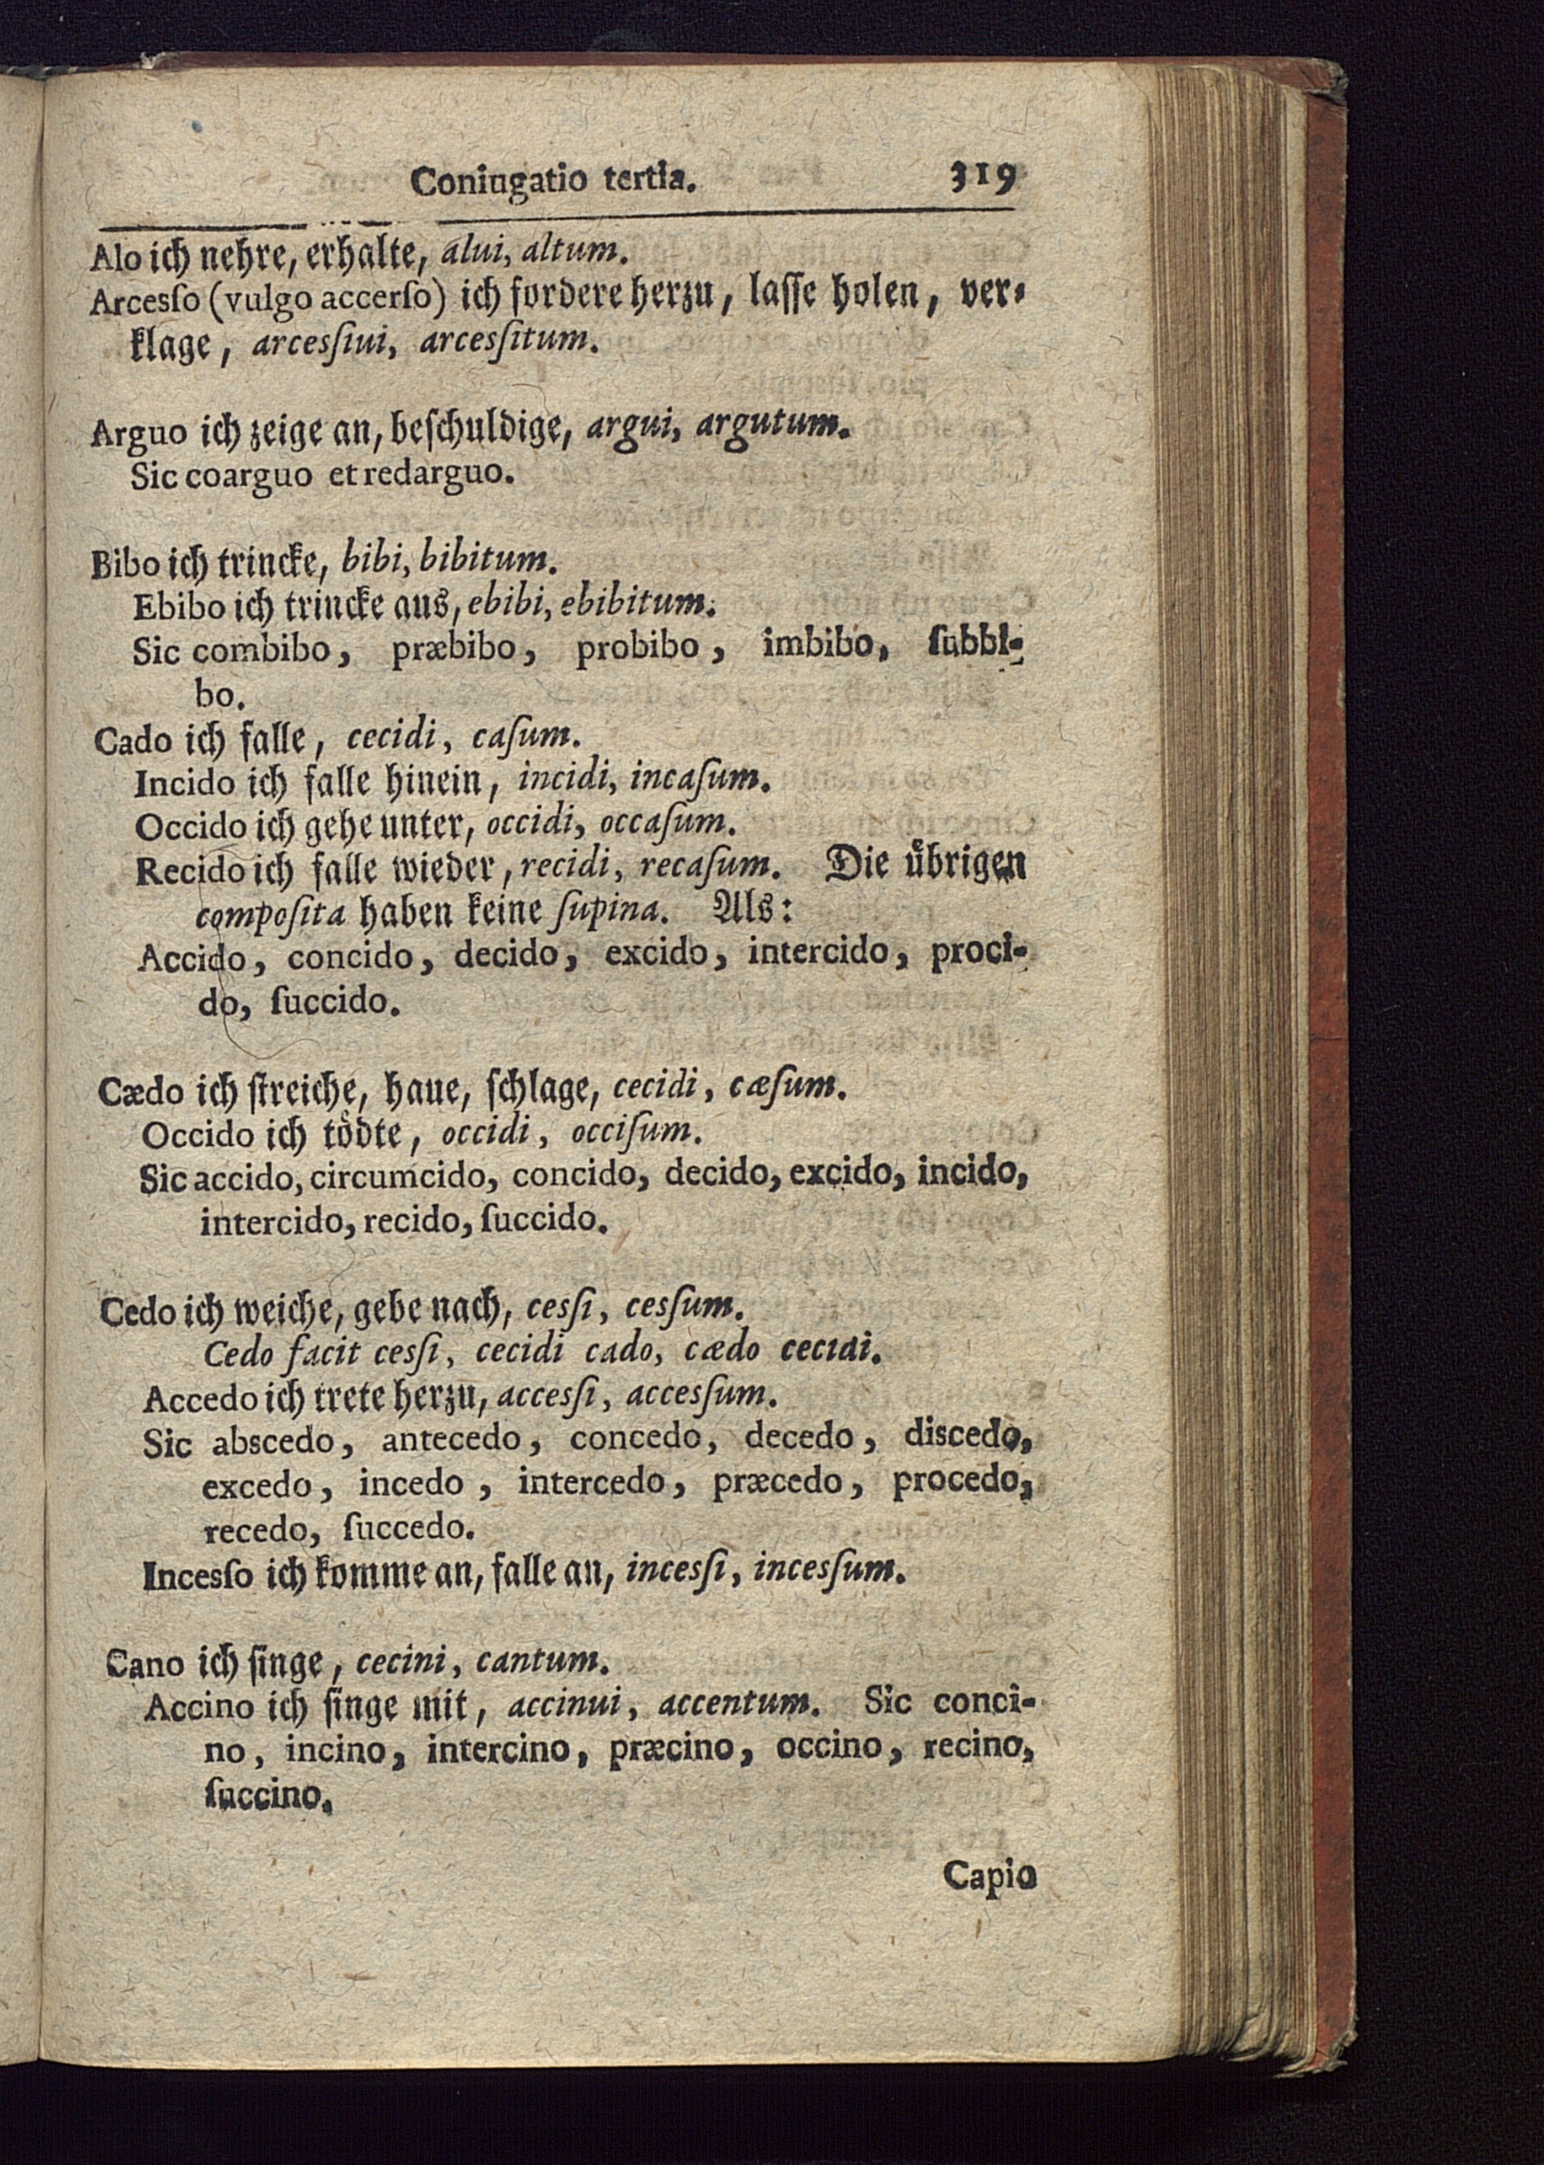 Coniugatio tertia. 319
Alo ich nehre, erhalte, alui, altum.
Arcesſo (vulgo accerſo) ich fordere herzu, laſſe holen, ver-
klage, arcesſiui, arcesſitum.
Arguo ich zeige an, beſchuldige, argui, argutum.
Sic coarguo et redarguo.
Bibo ich trincke, bibi, bibitum.
Ebibo ich trincke aus, ebibi, ebibitum.
Sic combibo, præbibo, probibo, imbibo, ſubbi-
bo.
Cado ich falle, cecidi, caſum.
Incido ich falle hinein, incidi, incaſum.
Occido ich gehe unter, occidi, occaſum.
Recido ich falle wieder, recidi, recaſum. Die uͤbrigen
compoſita haben keine ſupina. Als:
Accido, concido, decido, excido, intercido, proci-
do, ſuccido.
Cædo ich ſtreiche, haue, ſchlage, cecidi, cæſum.
Occido ich toͤdte, occidi, occiſum.
Sic accido, circumcido, concido, decido, excido, incido,
intercido, recido, ſuccido.
Cedo ich weiche, gebe nach, cesſi, cesſum.
Cedo facit cesſi, cecidi cado, cædo cecidi.
Accedo ich trete herzu, accesſi, accesſum.
Sic abscedo, antecedo, concedo, decedo, discedo,
excedo, incedo, intercedo, præcedo, procedo,
recedo, ſuccedo.
Incesſo ich komme an, falle an, incesſi, incesſum.
Cano ich ſinge, cecini, cantum.
Accino ich ſinge mit, accinui, accentum. Sic conci-
no, incino, intercino, præcino, occino, recino,
ſuccino.
Capio